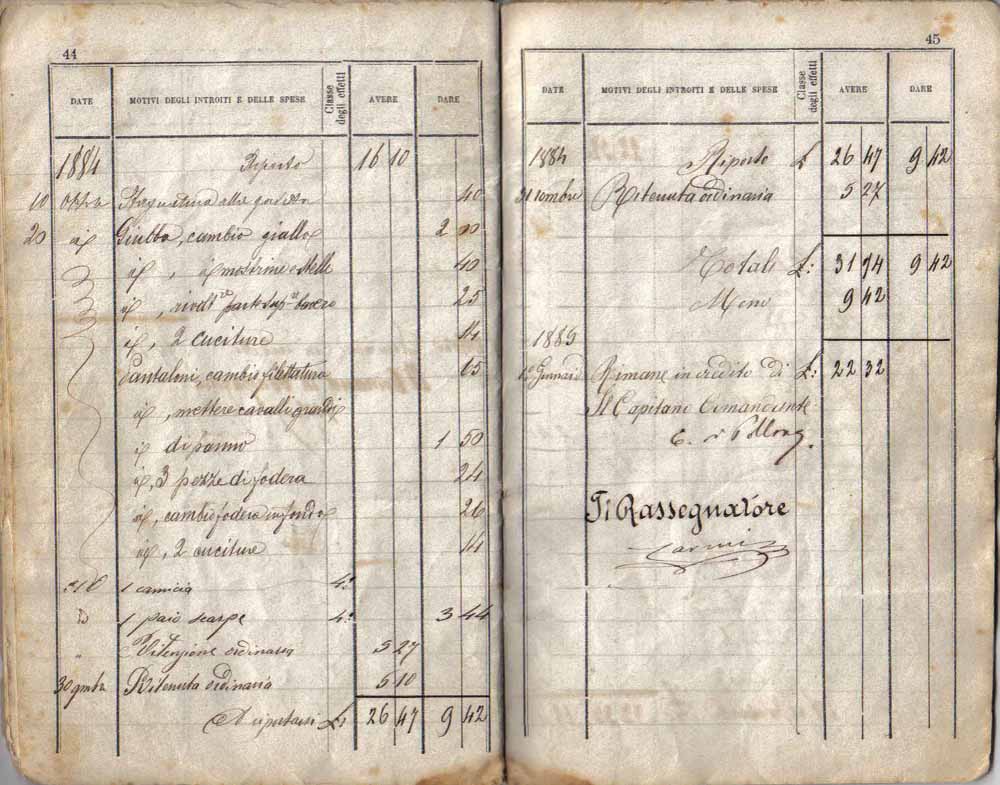 44
DATE MOTIVI DEGLI INTROITI E DELLE SPESE Classe degli effetti AVERE DARE
1884 Riporto 16 10
10 Ottbre alla 40
20 id Giubba, cambio giallo 2 00
id, id mostrine e stelle 40
id, bavero 25
id, 2 cuciture 14
Pantaloni, cambio filettatura 15
id, mettere cavalli grandi
id di panno 1 50
id, 3 pezze di fodera 24
id, cambio fodera in fondo 26
id, 2 cuciture 14
1 camicia 4ª
1 paio scarpe 4ª 3 44
" Ritenzione ordinaria 5 27
30 9mbre Ritenuta ordinaria 5 10
A riportarsi L: 26 47 9 42
45
DATE MOTIVI DEGLI INTROITI E DELLE SPESE Classe degli effetti AVERE DARE
1884 Riporto L 26 47 9 42
31 Xembre Ritenuta ordinaria 5 27
Totali L: 31 74 9 42
Meno 9 42
1885
1º Gennaio Rimane in credito di L: 22 32
Il Capitano Comandante
Il Rassegnatore